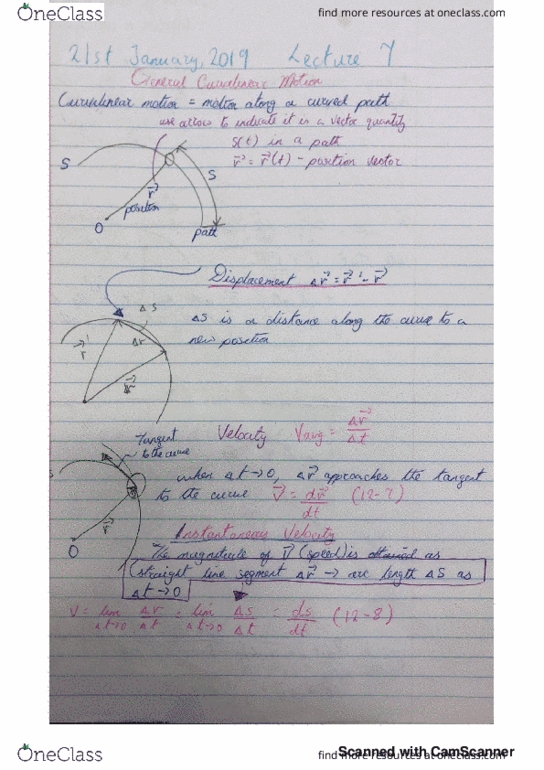 OneClass
find more resources at oneclass.com
21st January, 2019 Lecture 7
General Curvilinear Motion
Curvilinear motion = motion along a curved path
use arrow to indicate it is a vector quantity
S(t) is a path
r⃗ = r⃗(t) - position vector
S
S
r⃗
position
O
path
Displacement Δr⃗ = r⃗' - r⃗
ΔS
ΔS is a distance along the curve to a
new position
Δr
r⃗'
r⃗
Tangent
to the curve
Velocity Vavg = Δr⃗/Δt
when Δt→0, Δr⃗ approaches the tangent
to the curve V⃗ = dr⃗/dt (12-7)
r⃗
O
Instantaneous Velocity
The magnitude of V⃗ (speed) is obtained as
(straight line segment Δr⃗ → arc length ΔS as
Δt→0
V = lim Δt→0 Δr/Δt = lim Δt→0 Δs/Δt = ds/dt (12-8)
Scanned with CamScanner
OneClass
find more resources at oneclass.com